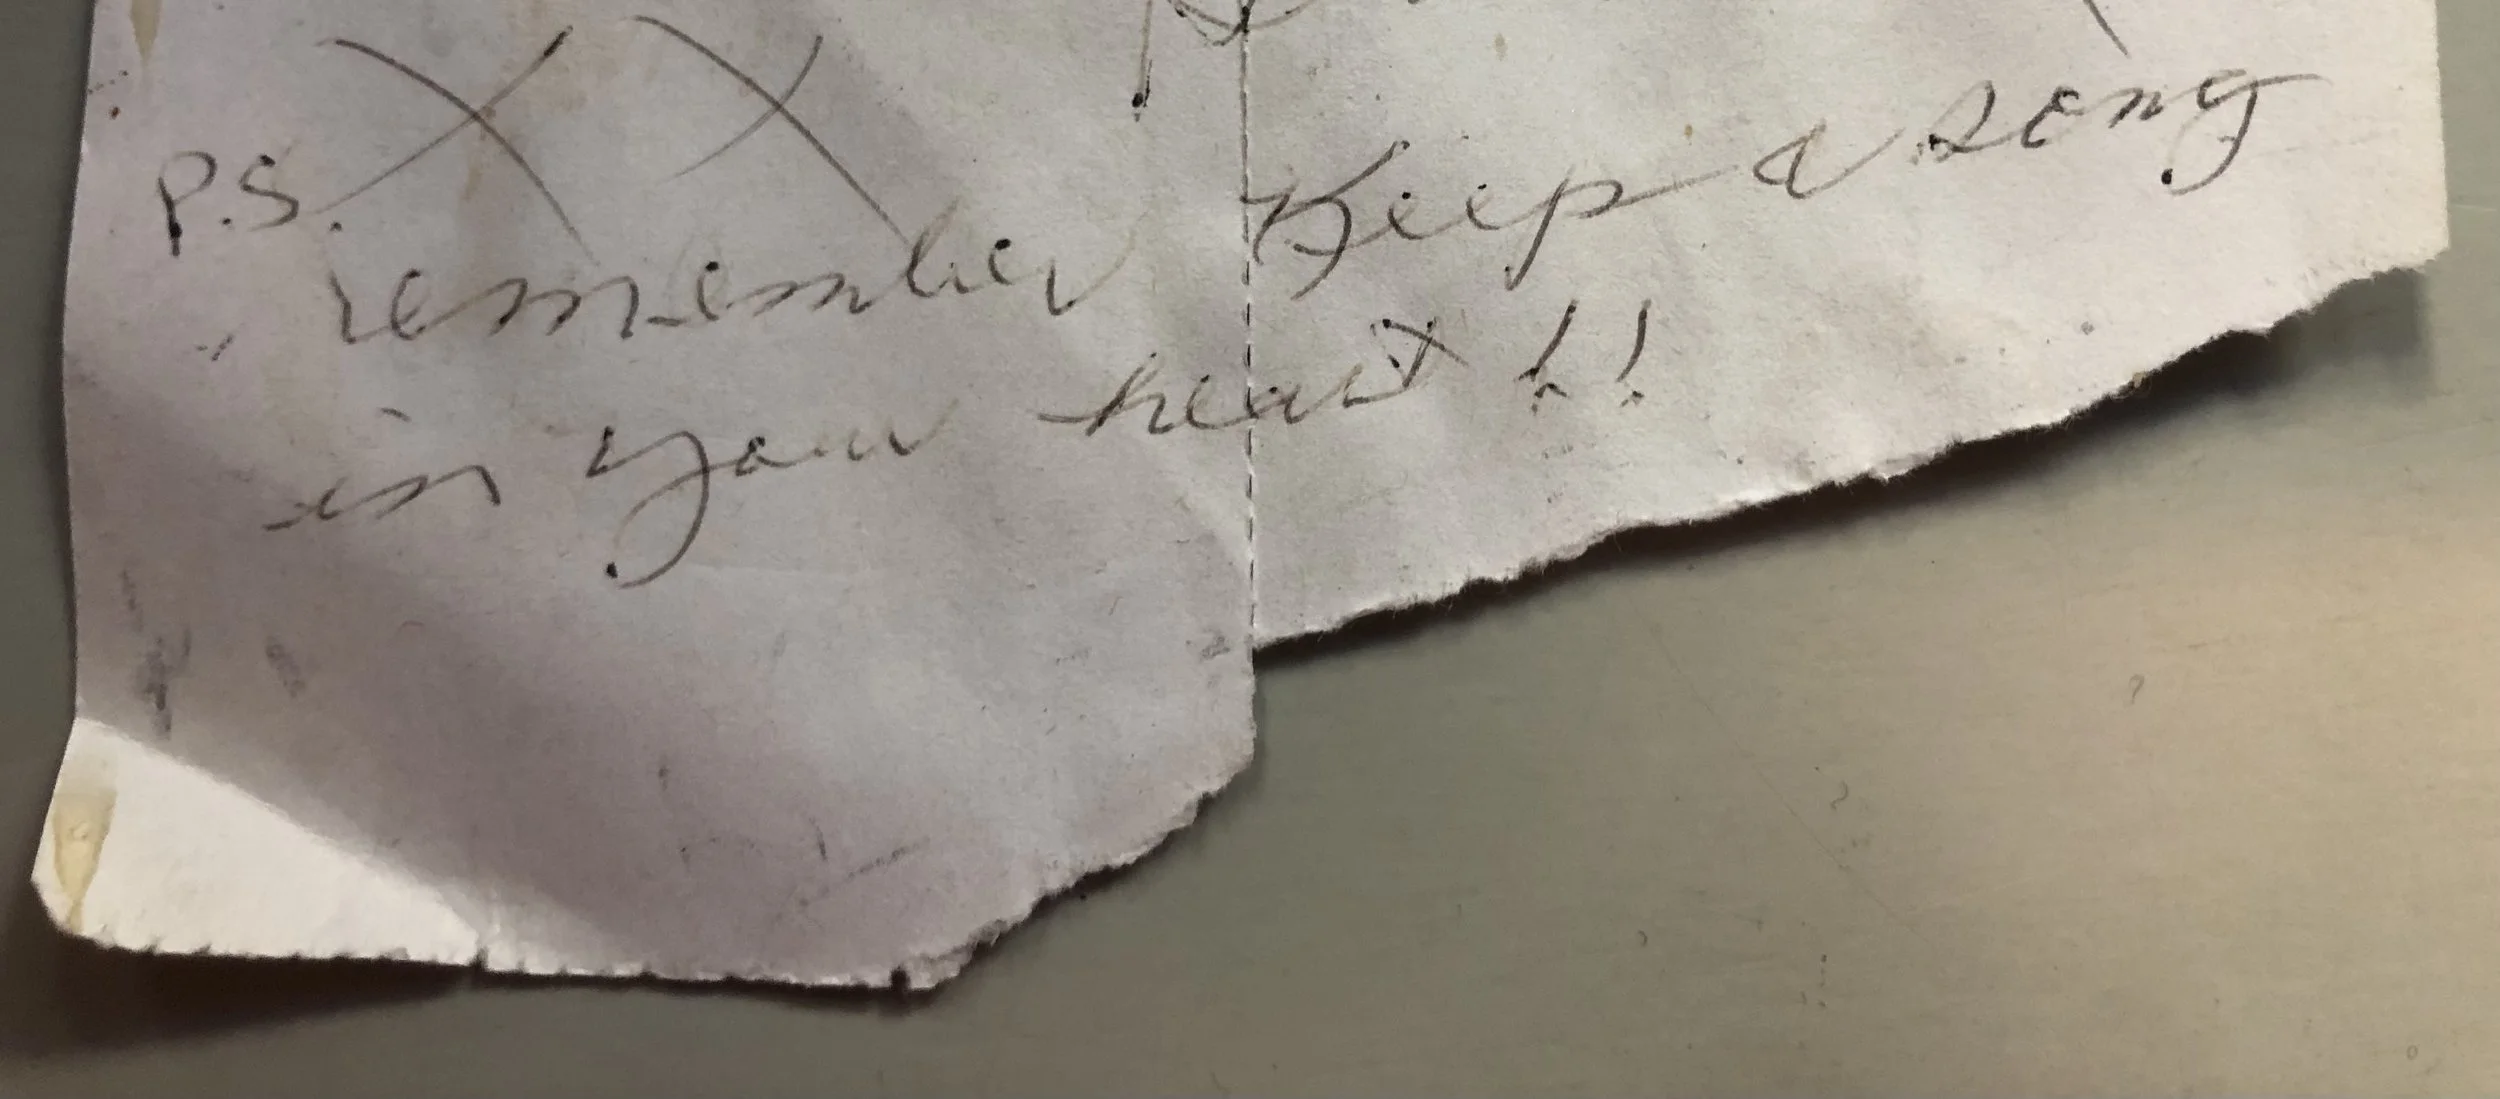 X X
P.S.
remember Keep a song
in your heart!!